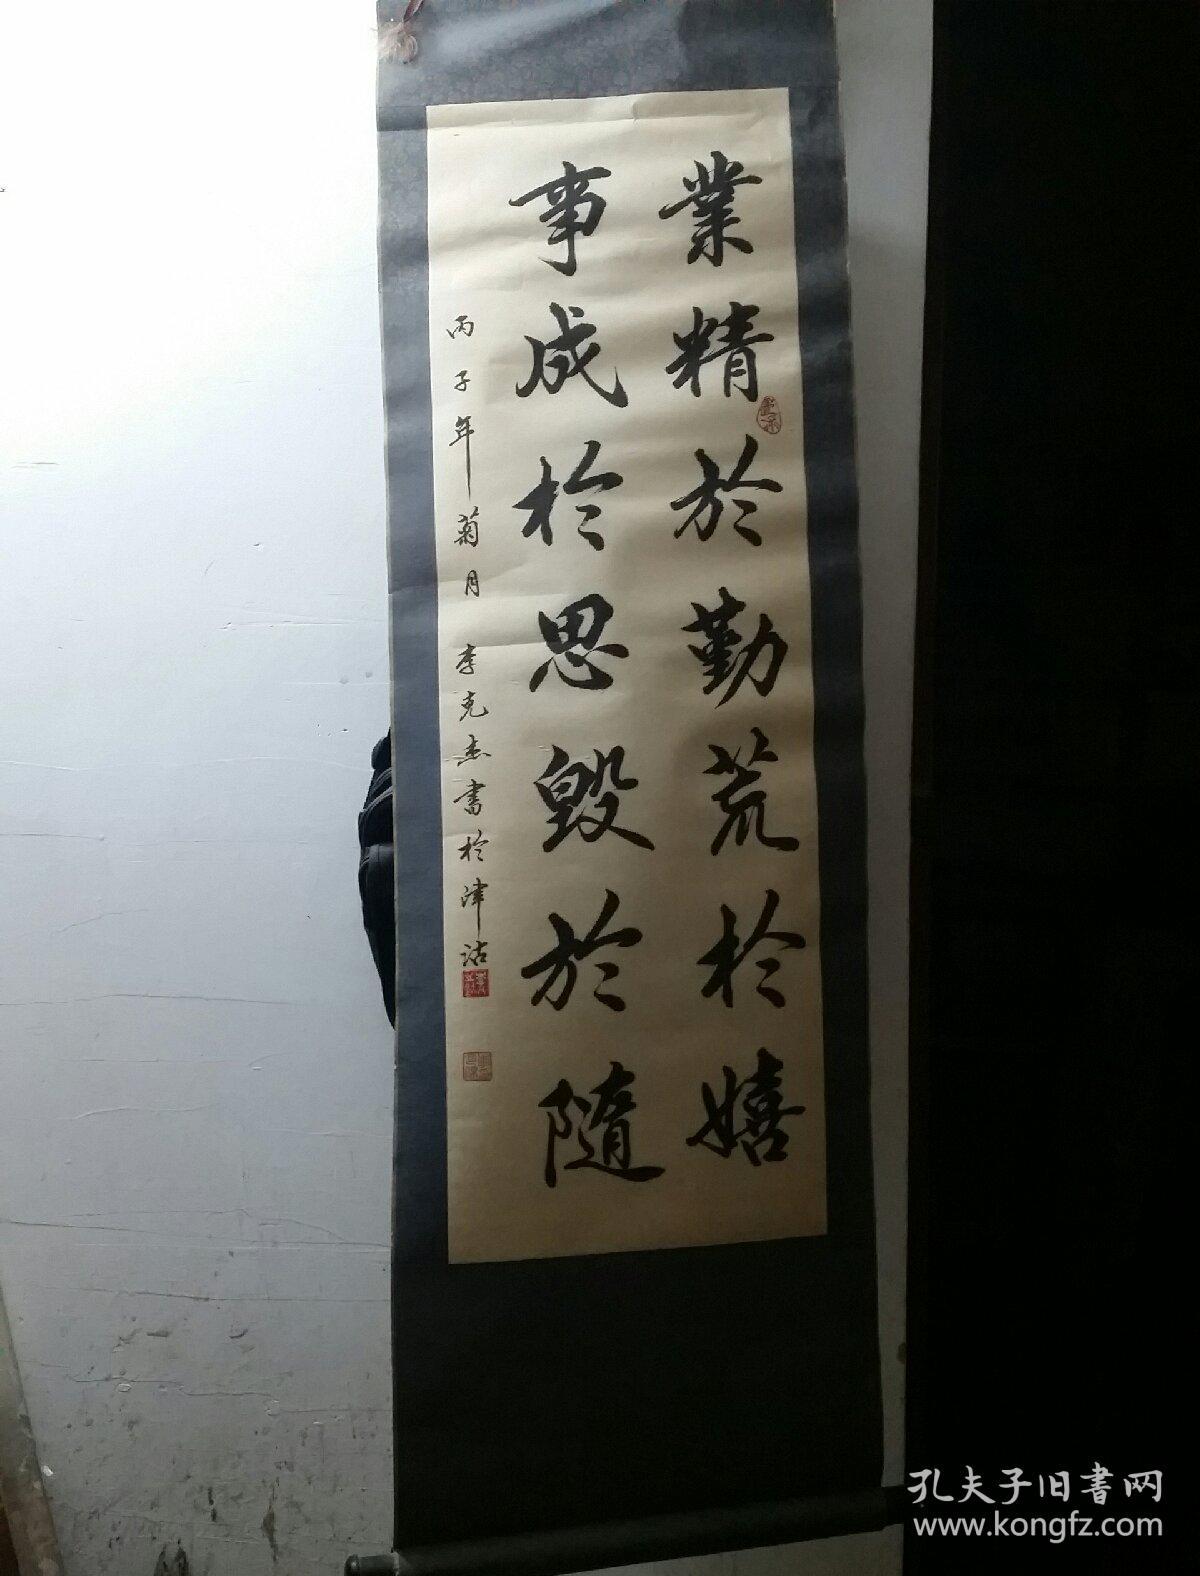 業精於勤荒於嬉
事成於思毀於隨
丙子年菊月 李克杰書於津沽
孔夫子旧書网
www.kongfz.com